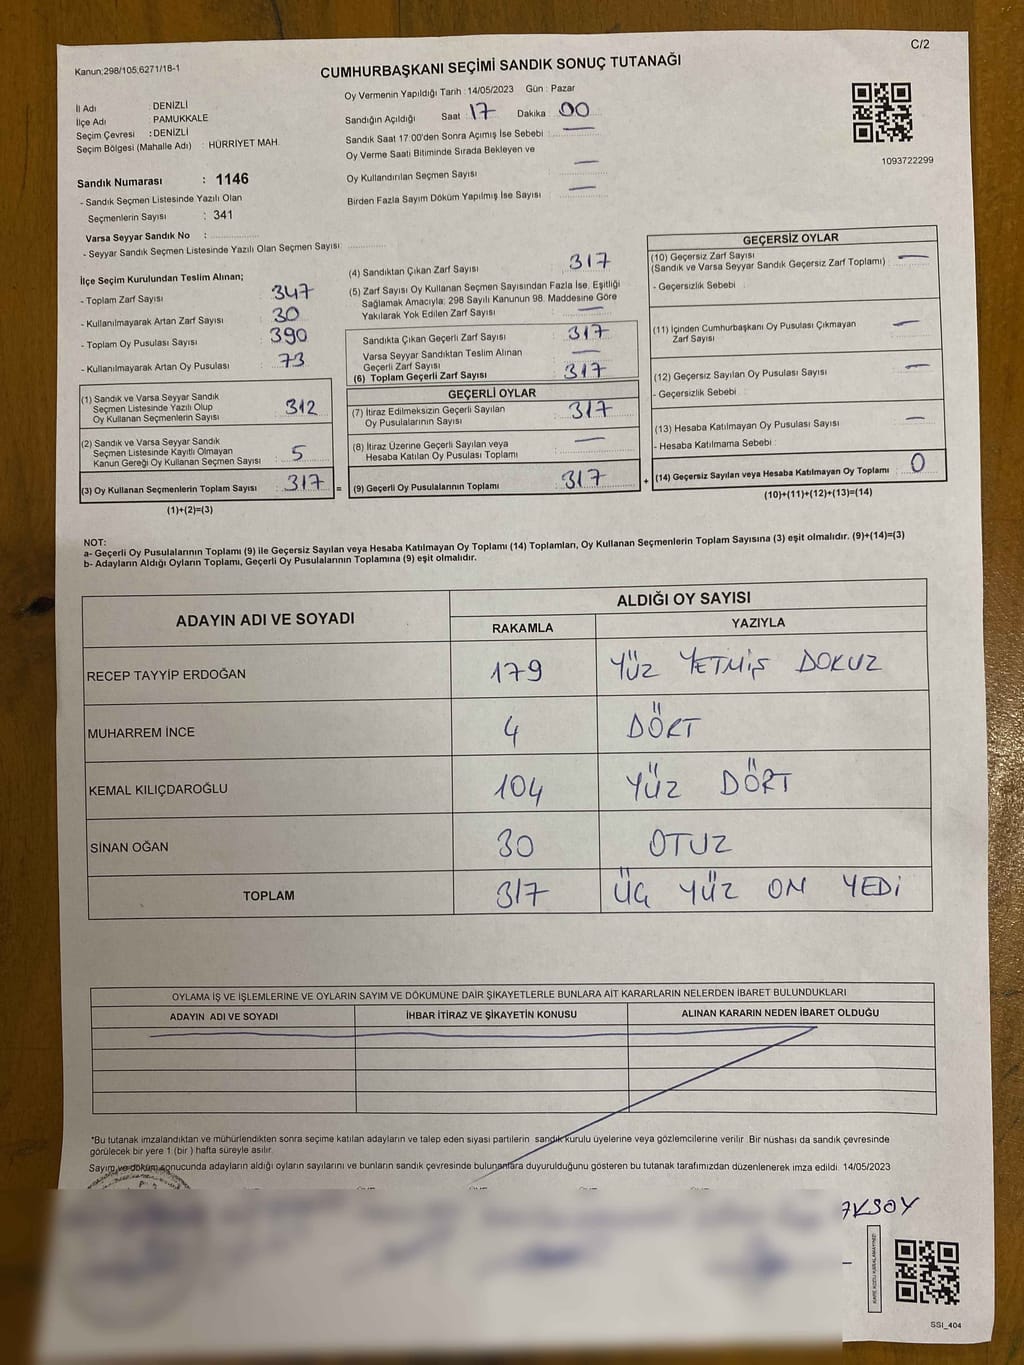 C/2
Kanun;298/105;6271/18-1
CUMHURBAŞKANI SEÇİMİ SANDIK SONUÇ TUTANAĞI
İl Adı : DENİZLİ
İlçe Adı : PAMUKKALE
Seçim Çevresi : DENİZLİ
Seçim Bölgesi (Mahalle Adı) : HÜRRİYET MAH.
Oy Vermenin Yapıldığı Tarih : 14/05/2023 Gün : Pazar
Sandığın Açıldığı Saat : 17 Dakika : 00
Sandık Saat 17:00'den Sonra Açımış İse Sebebi : —
Oy Verme Saati Bitiminde Sırada Bekleyen ve
Oy Kullandırılan Seçmen Sayısı : —
Birden Fazla Sayım Döküm Yapılmış İse Sayısı : —
1093722299
Sandık Numarası : 1146
- Sandık Seçmen Listesinde Yazılı Olan
Seçmenlerin Sayısı : 341
Varsa Seyyar Sandık No :
- Seyyar Sandık Seçmen Listesinde Yazılı Olan Seçmen Sayısı:
İlçe Seçim Kurulundan Teslim Alınan;
- Toplam Zarf Sayısı : 347
- Kullanılmayarak Artan Zarf Sayısı : 30
- Toplam Oy Pusulası Sayısı : 390
- Kullanılmayarak Artan Oy Pusulası : 73
(1) Sandık ve Varsa Seyyar Sandık
Seçmen Listesinde Yazılı Olup
Oy Kullanan Seçmenlerin Sayısı : 312
(2) Sandık ve Varsa Seyyar Sandık
Seçmen Listesinde Kayıtlı Olmayan
Kanun Gereği Oy Kullanan Seçmen Sayısı : 5
(3) Oy Kullanan Seçmenlerin Toplam Sayısı : 317 =
(1)+(2)=(3)
(4) Sandıktan Çıkan Zarf Sayısı : 317
(5) Zarf Sayısı Oy Kullanan Seçmen Sayısından Fazla İse, Eşitliği
Sağlamak Amacıyla; 298 Sayılı Kanunun 98. Maddesine Göre
Yakılarak Yok Edilen Zarf Sayısı : —
Sandıkta Çıkan Geçerli Zarf Sayısı : 317
Varsa Seyyar Sandıktan Teslim Alınan
Geçerli Zarf Sayısı : —
(6) Toplam Geçerli Zarf Sayısı : 317
GEÇERLİ OYLAR
(7) İtiraz Edilmeksizin Geçerli Sayılan
Oy Pusulalarının Sayısı : 317
(8) İtiraz Üzerine Geçerli Sayılan veya
Hesaba Katılan Oy Pusulası Toplamı : —
(9) Geçerli Oy Pusulalarının Toplamı : 317 +
GEÇERSİZ OYLAR
(10) Geçersiz Zarf Sayısı : —
(Sandık ve Varsa Seyyar Sandık Geçersiz Zarf Toplamı)
- Geçersizlik Sebebi :
(11) İçinden Cumhurbaşkanı Oy Pusulası Çıkmayan
Zarf Sayısı : —
(12) Geçersiz Sayılan Oy Pusulası Sayısı : —
- Geçersizlik Sebebi :
(13) Hesaba Katılmayan Oy Pusulası Sayısı : —
- Hesaba Katılmama Sebebi :
(14) Geçersiz Sayılan veya Hesaba Katılmayan Oy Toplamı : 0
(10)+(11)+(12)+(13)=(14)
NOT:
a- Geçerli Oy Pusulalarının Toplamı (9) ile Geçersiz Sayılan veya Hesaba Katılmayan Oy Toplamı (14) Toplamları, Oy Kullanan Seçmenlerin Toplam Sayısına (3) eşit olmalıdır. (9)+(14)=(3)
b- Adayların Aldığı Oyların Toplamı, Geçerli Oy Pusulalarının Toplamına (9) eşit olmalıdır.
ADAYIN ADI VE SOYADI ALDIĞI OY SAYISI
RAKAMLA YAZIYLA
RECEP TAYYİP ERDOĞAN 179 YÜZ YETMİŞ DOKUZ
MUHARREM İNCE 4 DÖRT
KEMAL KILIÇDAROĞLU 104 YÜZ DÖRT
SİNAN OĞAN 30 OTUZ
TOPLAM 317 ÜÇ YÜZ ON YEDİ
OYLAMA İŞ VE İŞLEMLERİNE VE OYLARIN SAYIM VE DÖKÜMÜNE DAİR ŞİKAYETLERLE BUNLARA AİT KARARLARIN NELERDEN İBARET BULUNDUKLARI
ADAYIN ADI VE SOYADI İHBAR İTİRAZ VE ŞİKAYETİN KONUSU ALINAN KARARIN NEDEN İBARET OLDUĞU
*Bu tutanak imzalandıktan ve mühürlendikten sonra seçime katılan adayların ve talep eden siyasi partilerin sandık kurulu üyelerine veya gözlemcilerine verilir. Bir nüshası da sandık çevresinde
görülecek bir yere 1 (bir ) hafta süreyle asılır.
Sayım ve döküm sonucunda adayların aldığı oyların sayılarını ve bunların sandık çevresinde bulunanlara duyurulduğunu gösteren bu tutanak tarafımızdan düzenlenerek imza edildi. 14/05/2023
AKSOY
SSI_404